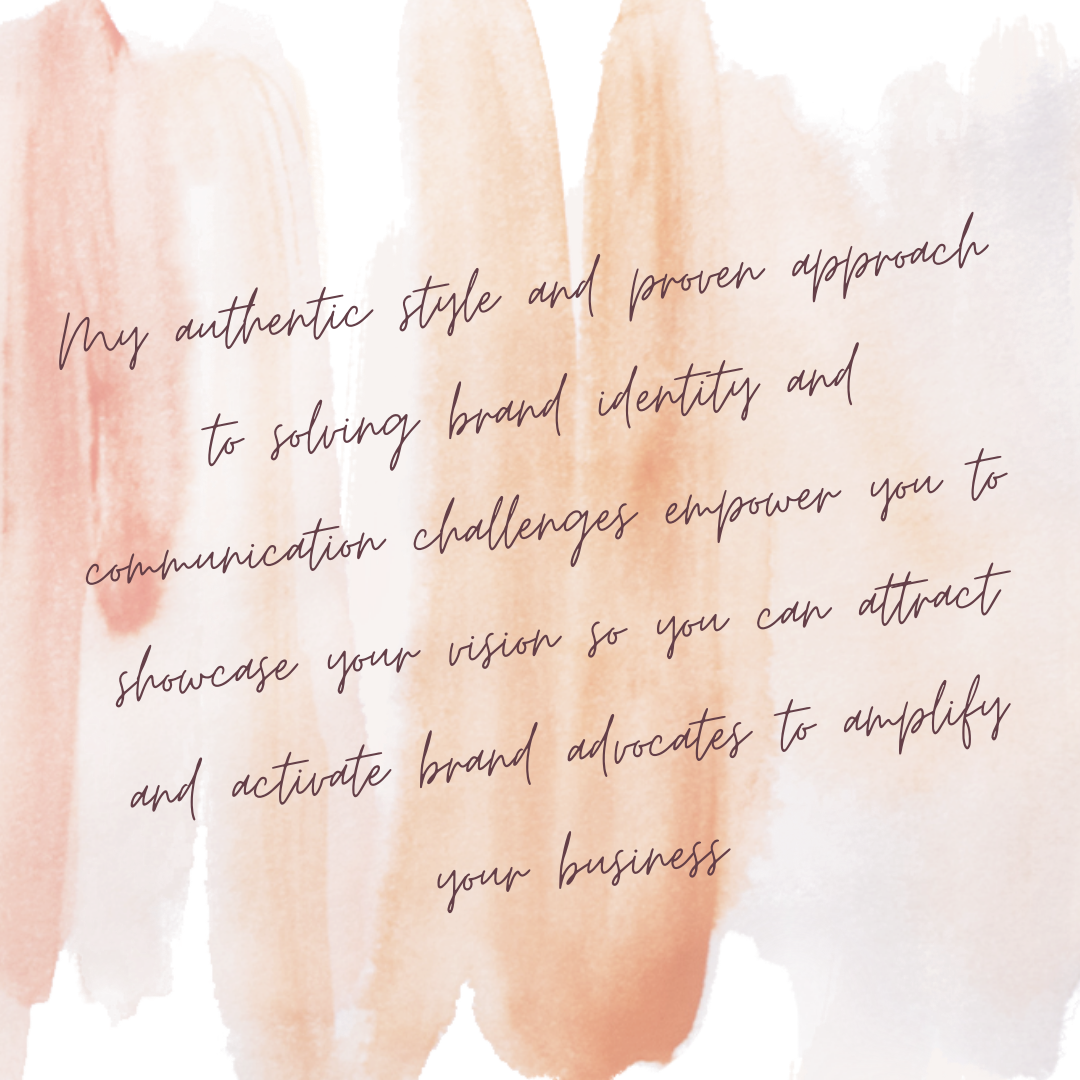 My authentic style and proven approach
to solving brand identity and
communication challenges empower you to
showcase your vision so you can attract
and activate brand advocates to amplify
your business